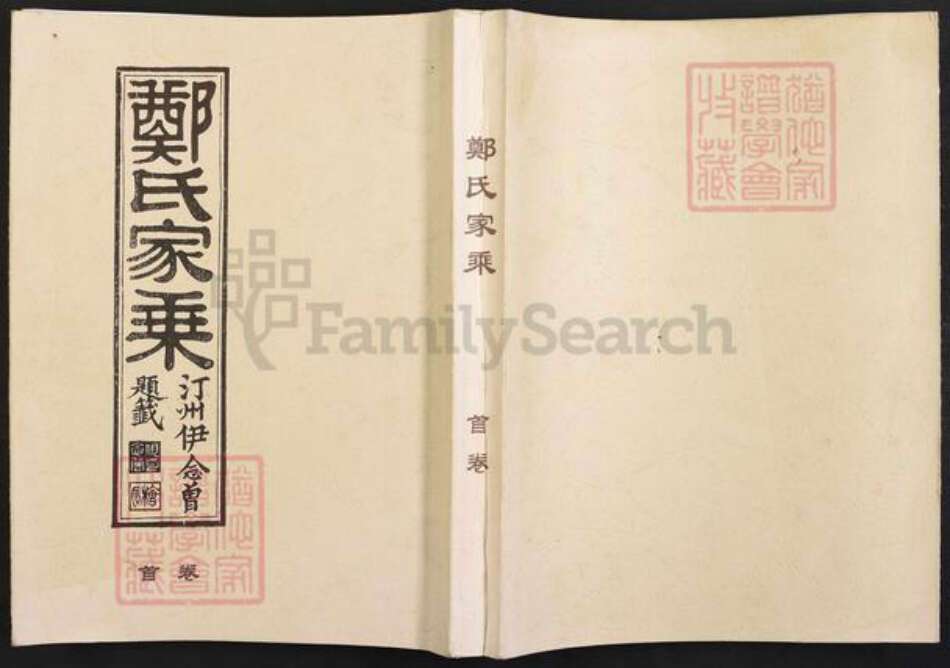 鄭氏家乘
汀州伊念曾
題籤
首卷
鄭氏家乘
首卷
猶他家
譜學會
收藏
猶他家
譜學會
收藏
FamilySearch